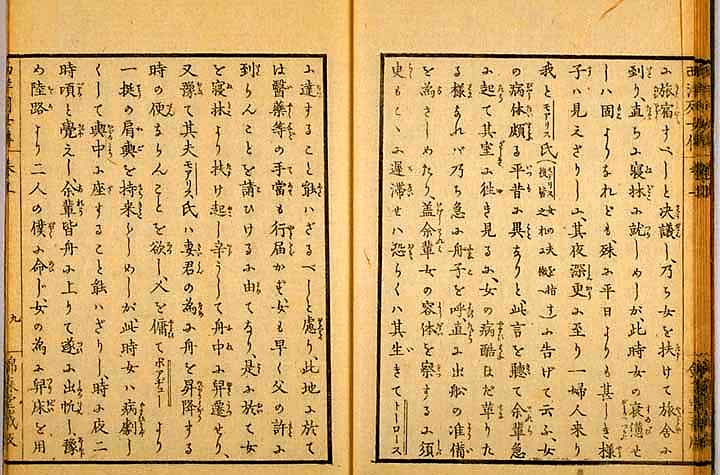 ふ旅宿すべしと決議し、乃ち女を扶けて旅舎ふ
到り直ちふ寝牀ふ就しめしが此時女の衰憊せ
しハ固よりなれども殊ふ平日よりも甚しき様
子ハ見えざりし、ふ其夜深更ふ至り一婦人来り
我とモアリス氏
ふ告げて云ふ、女
の病体頗る平昔ふ異なりと、此言を聴て余輩急
ふ起て其室ふ往き見るふ、女の病酷はだ草りた
る様なれバ乃ち急ふ舟子を呼、直ふ出船の准備
を為さしめたり、蓋余輩女の容体を察するふ須
臾もここふ遅滞せバ恐らくハ其生きてトーロース
ふ達すること能ハざるべしと慮り、此地ふ於て
は医薬等の手當も行届かず、女も早く父の許ふ
到らんことを請ひけるふ由てなり、是ふ於て女
を寝牀より扶け起し辛うして舟中ふ舁遷せり、
又豫て其夫モアリス氏ハ妻君の為ふ舟を昇降する
時の便ならんことを欲し、人を傭てボアヂューより
一挺の肩輿を持来らしめしが此時女ハ病劇し
くして輿中ふ座すること能ハざりし、時ふ夜二
時頃と覚えし、余輩皆舟ふ上りて遂ふ出帆し、豫
め陸路より二人の僕ふ命じ、女の為ふ舁床を用
九